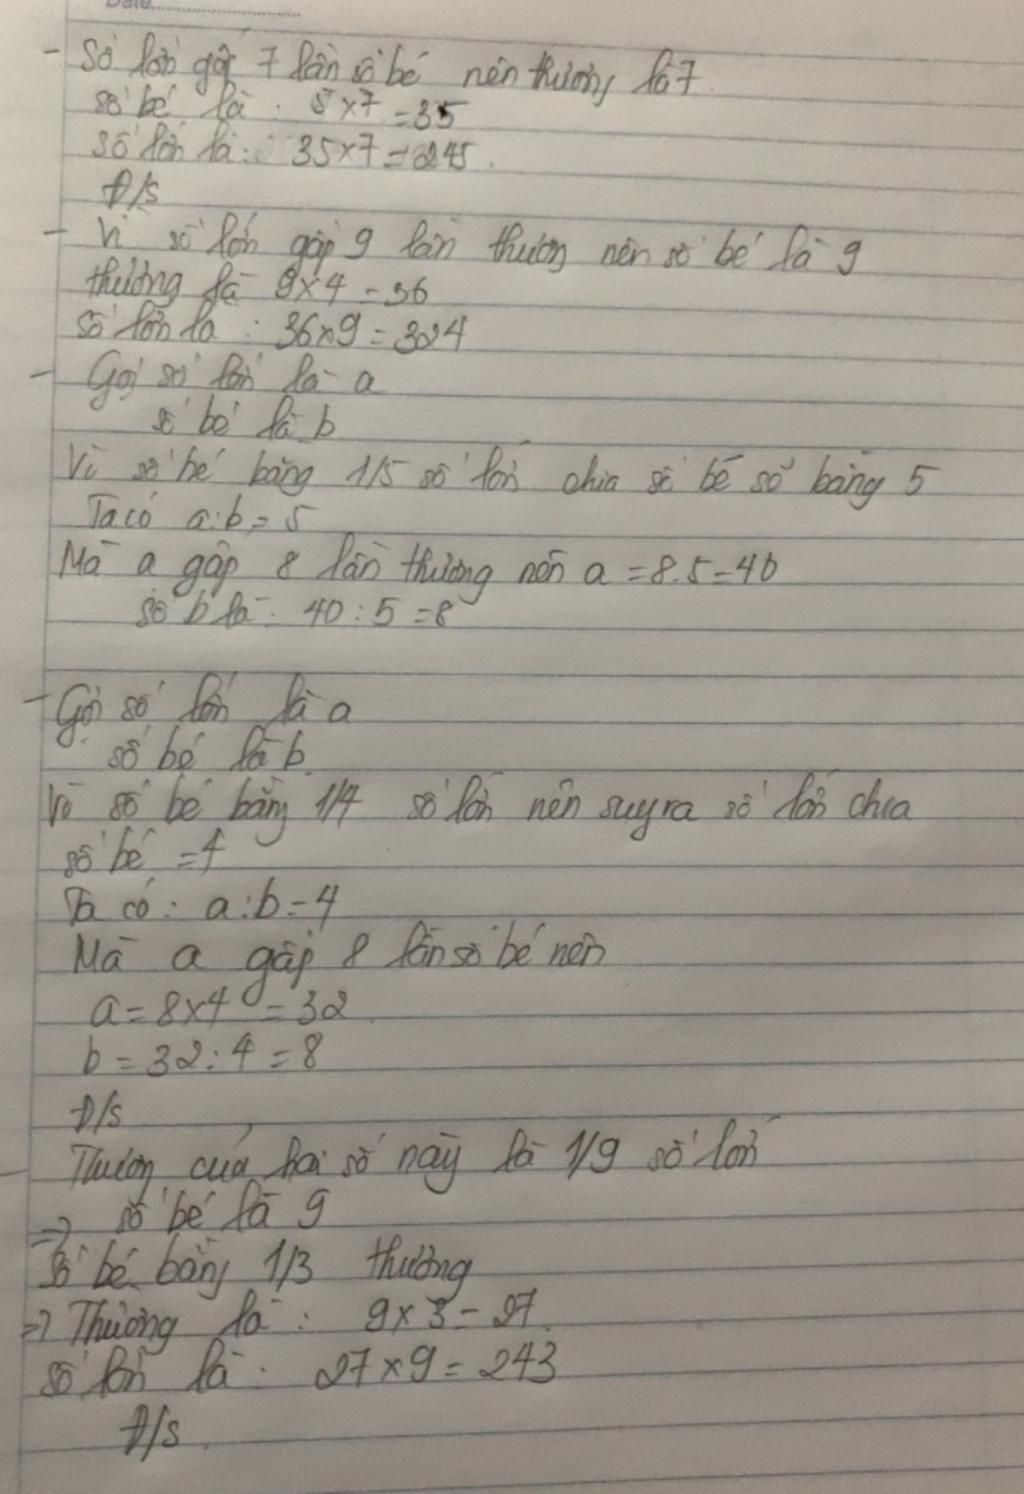 Date
- Số lớn gấp 7 lần số bé nên thương là 7
số bé là : 5 x 7 = 35
số lớn là : 35 x 7 = 245
Đ/S
- Vì số lớn gấp 9 lần thương nên số bé là 9
thương là 9 x 4 = 36
Số lớn là : 36 x 9 = 324
- Gọi số lớn là a
số bé là b
Vì số bé bằng 1/5 số lớn chia số bé số bằng 5
Ta có a : b = 5
Mà a gấp 8 lần thương nên a = 8.5 = 40
số b là : 40 : 5 = 8
- Gọi số lớn là a
số bé là b
Vì số bé bằng 1/4 số lớn nên suy ra số lớn chia
số bé = 4
Ta có : a : b = 4
Mà a gấp 8 lần số bé nên
a = 8 x 4 = 32
b = 32 : 4 = 8
Đ/S
- Thương của hai số này là 1/9 số lớn
=> số bé là 9
Số bé bằng 1/3 thương
=> Thương là : 9 x 3 = 27
số lớn là : 27 x 9 = 243
Đ/S.